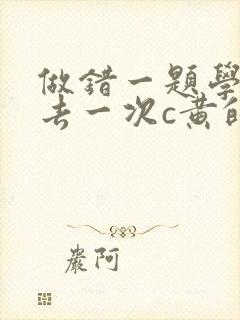 做錯一題學
去一次c黃自
嚴阿